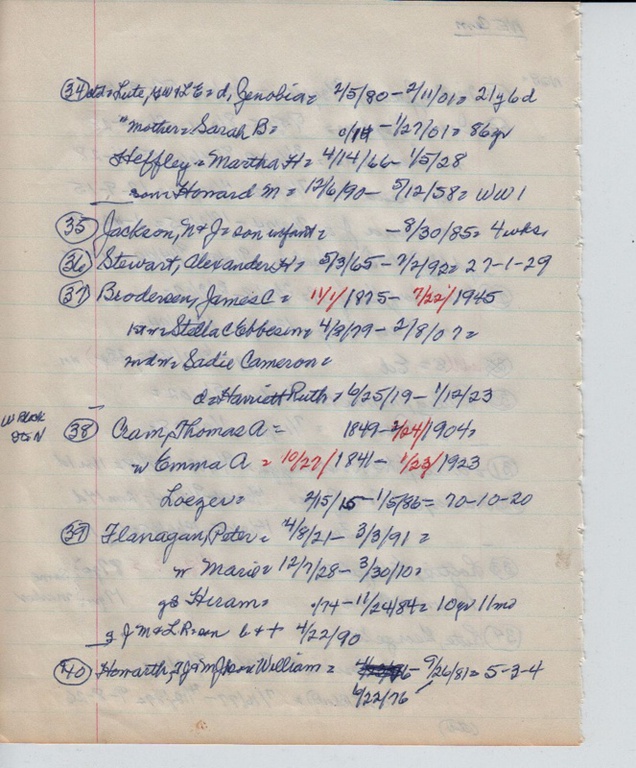 (34) Lute, & L E = d, Zenobia = 2/5/80 - 2/11/01 = 21y 6d
"mother = Sarah B = - 1/27/01 = 86yr
Heffley = Martha H = 4/14/66 - 1/5/28
son Howard M = 12/6/90 - 5/12/58 = WW1
(35) Jackson, N & J = son infant = - 8/30/85 = 4 wks.
(36) Stewart, Alexander H = 5/3/65 - 7/2/92 = 27-1-29
(37) Brodersen, James C = 11/1/1875 - 7/22/1945
1st w = Stella C Ebbesen = 4/8/79 - 2/8/07 =
2nd w = Sadie Cameron =
d = Harriett Ruth = 6/25/19 - 1/12/23
W Black
(38) Cram, Thomas A = 1849 - 2/24/1904 =
w Emma A = 10/27/1841 - 1/23/1923
Loeger = 2/15/15 - 1/5/86 = 70-10-20
(39) Flanagan, Peter = 4/8/21 - 3/3/91 =
w Marie = 12/7/28 - 3/30/10 =
gs Hiram = /74 - 11/24/84 = 10yr 11mo
J M & L R = son b + + 4/22/90
(40) Howarth, J & M J = son William = - 9/26/81 = 5-3-4
6/22/76